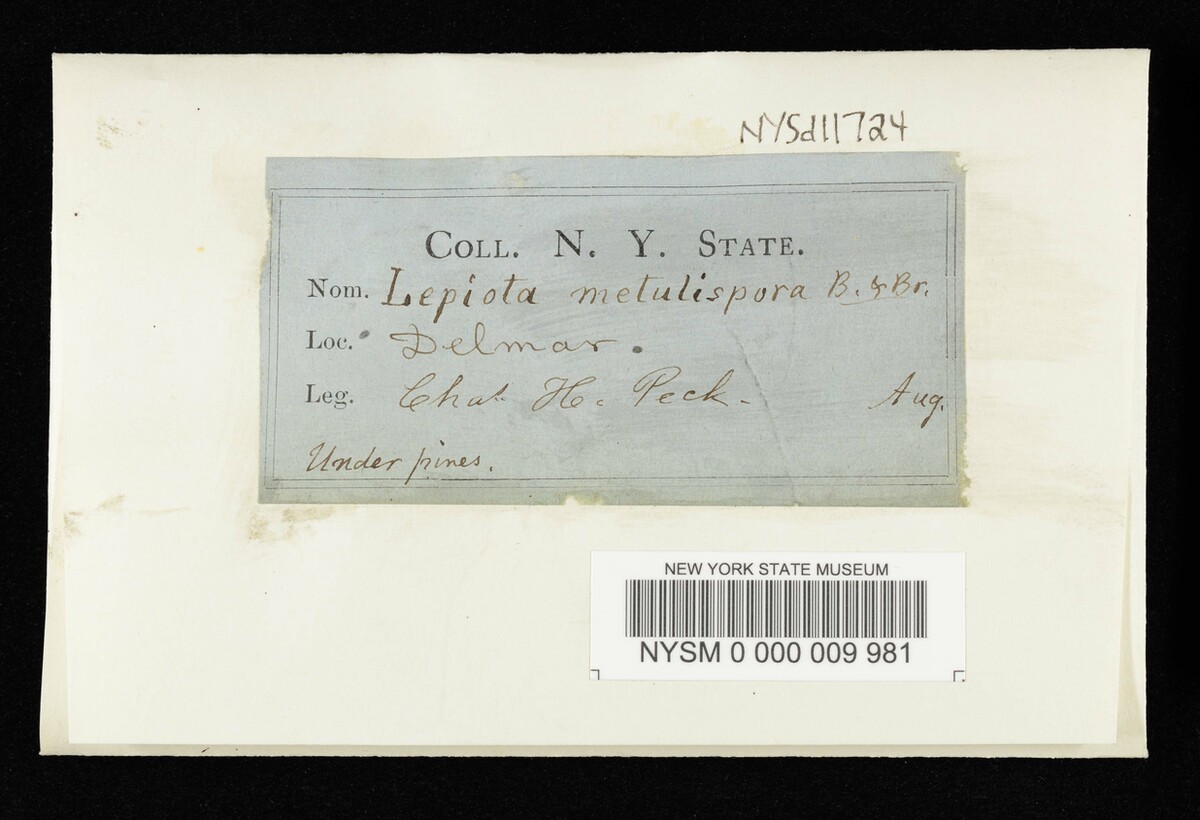 NYSd11724
COLL. N. Y. STATE.
Nom. Lepiota metulispora B. & Br.
Loc. Delmar.
Leg. Chas. H. Peck. Aug.
Under pines.
NEW YORK STATE MUSEUM
NYSM 0 000 009 981